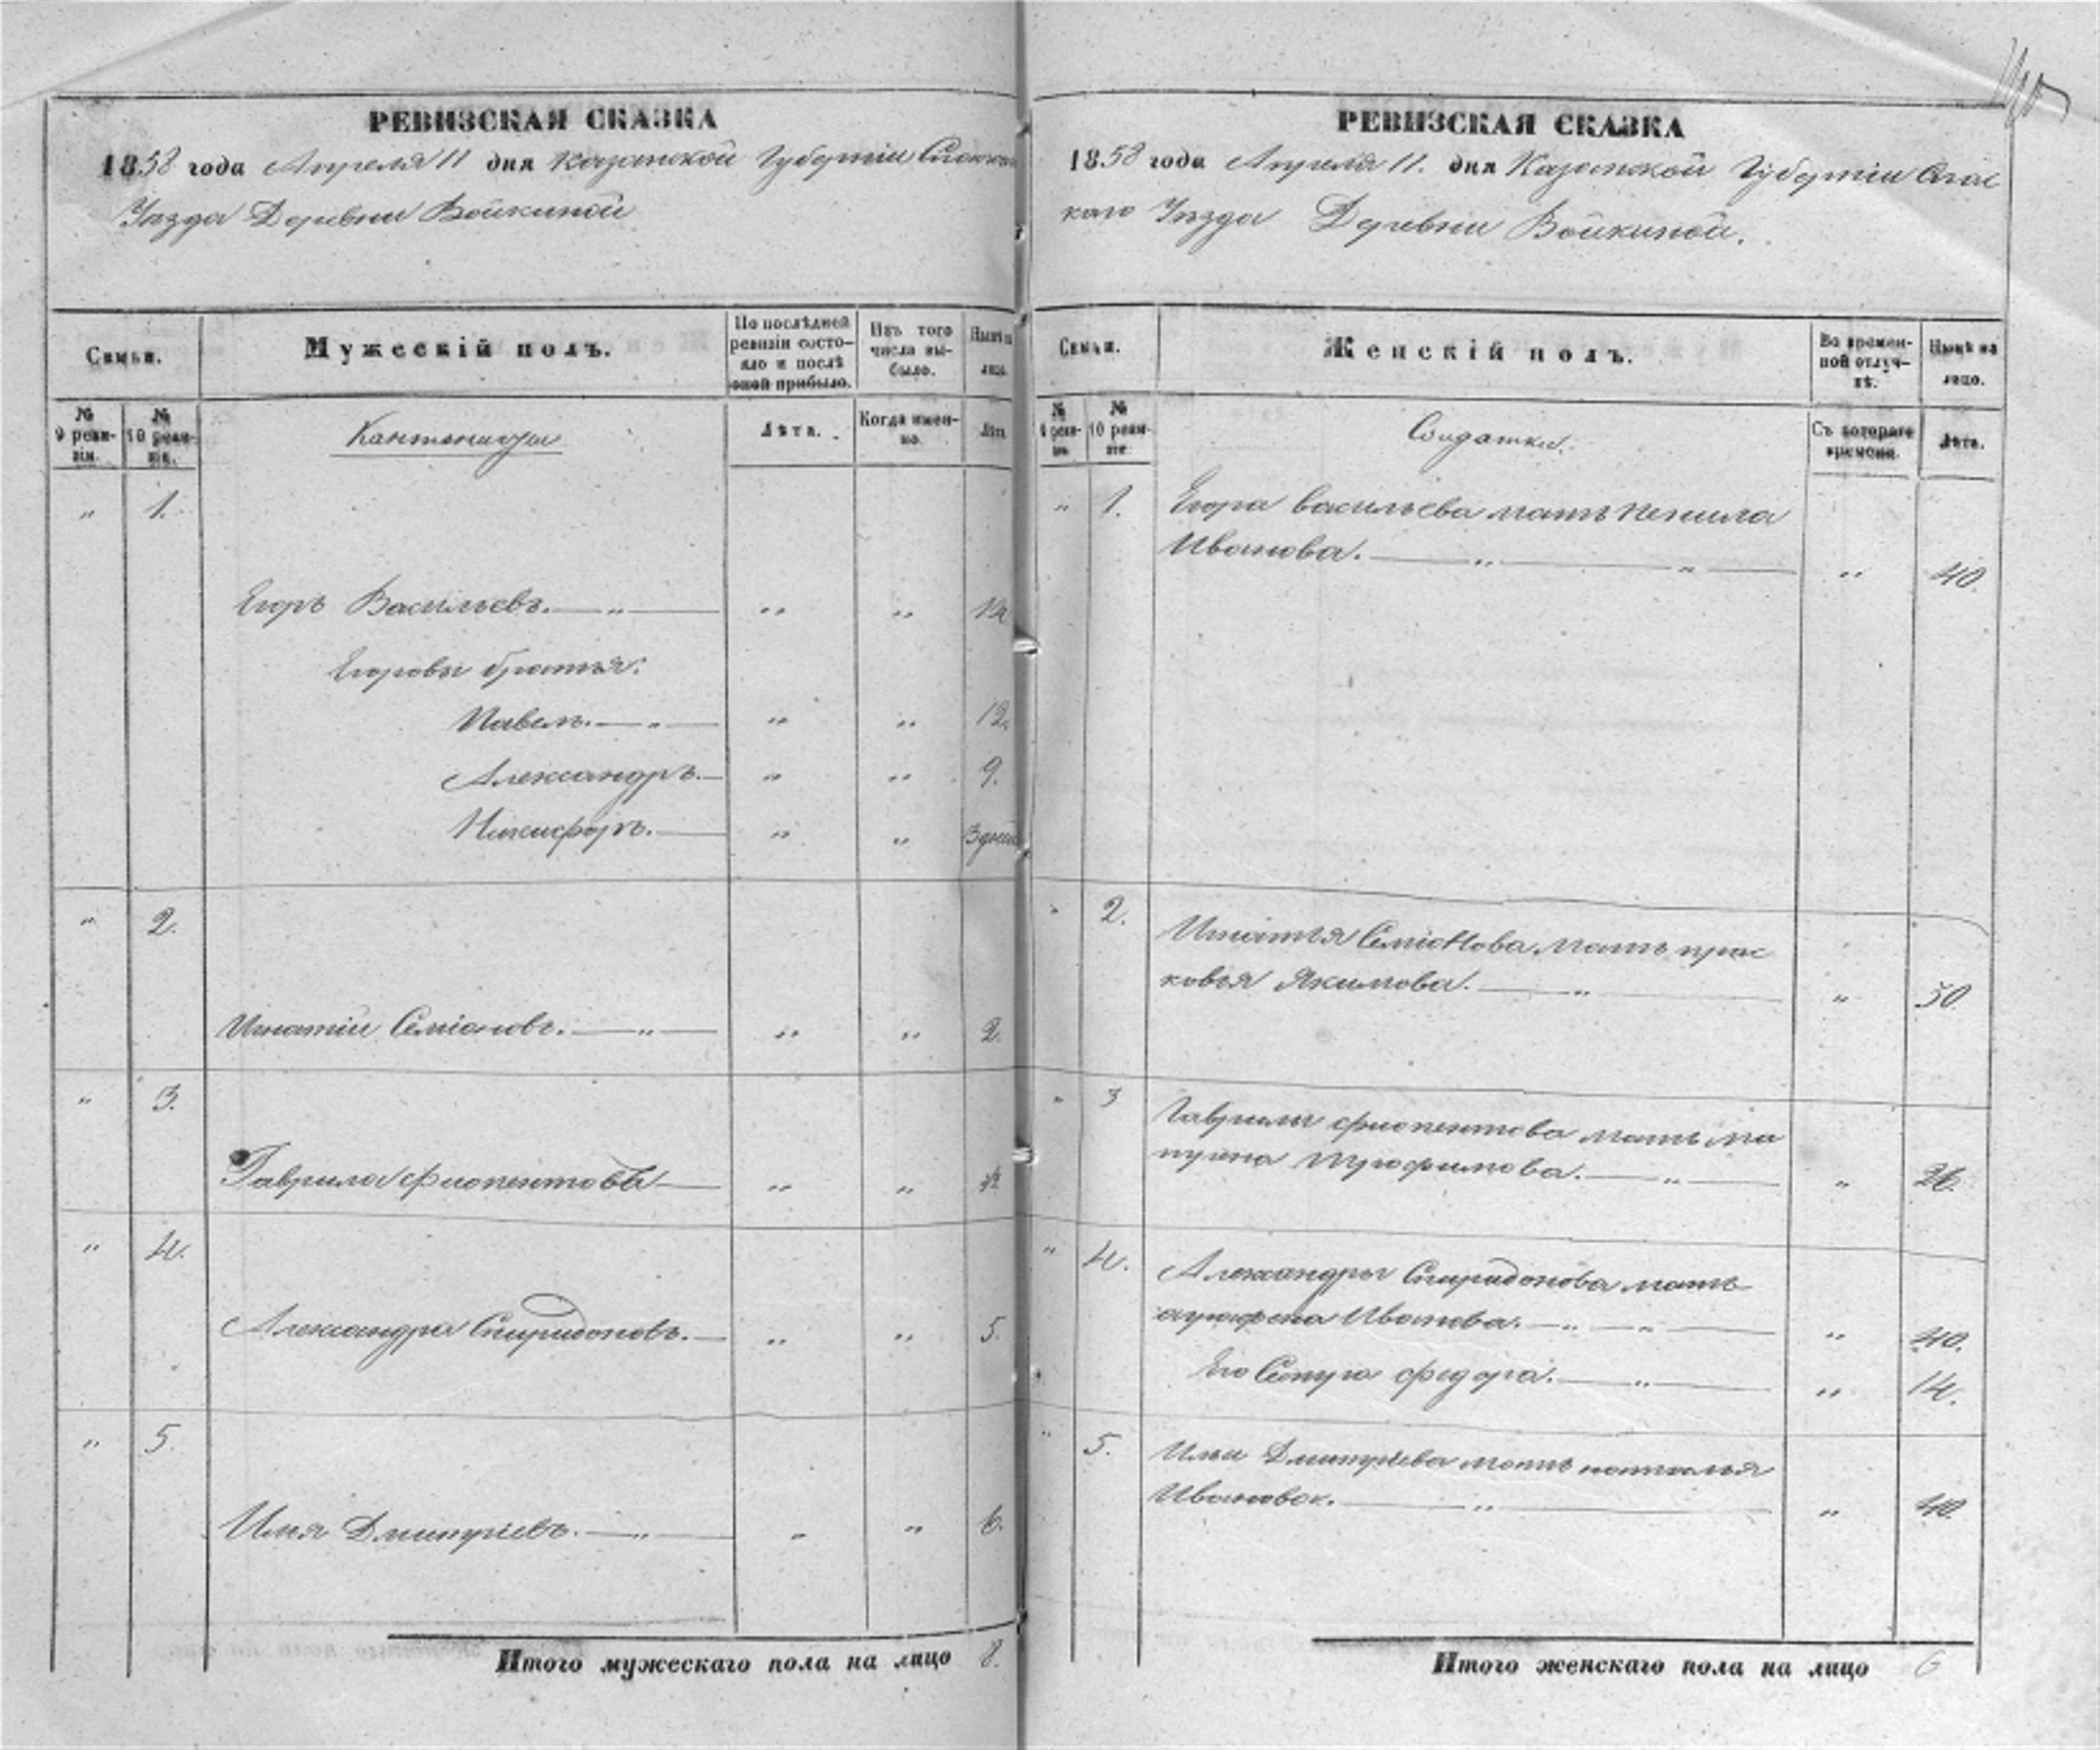 РЕВИЗСКАЯ СКАЗКА
1858 года Апреля 11 дня Казанской Губерніи Спаскаго
Уѣзда Деревни Войкиной
Семьи.
Мужескій полъ.
По послѣдней ревизіи состояло и послѣ оной прибыло.
Изъ того числа выбыло.
Нынѣ на лицо.
№ 9 ревизіи.
№ 10 ревизіи.
Кантонисты
Лѣта.
Когда именно.
Лѣта
„ 1.
Егоръ Васильевъ. „ „ „ 14
Егоровы братья:
Павелъ. „ „ „ 12.
Александръ. „ „ 9.
Никифоръ. „ „ 3 дней
„ 2.
Игнатій Семіоновъ. „ „ „ 2.
„ 3.
Гаврила Филопентовъ „ „
„ 4.
Александра Спиридоновъ. „ „ 5.
„ 5.
Илія Дмитріевъ. „ „ „ 6.
Итого мужескаго пола на лицо 8.
РЕВИЗСКАЯ СКАЗКА
1858 года Апреля 11. дня Казанской Губерніи Спас
каго Уѣзда Деревни Войкиной.
Семьи.
Женскій полъ.
Во временной отлучкѣ.
Нынѣ на лицо.
№ 9 ревизіи.
№ 10 ревизіи.
Солдатки.
Съ котораго времени.
Лѣта.
„ 1. Егора васильева мать
Иванова. „ „ „ 40.
„ 2. Игнатья Семіонова мать прас
ковья Якимова. „ „ 50
„ 3 Гаврилы филопентова мать ма
трофимова. „ „ 26.
„ 4. Александры Спиридонова мать
аграфена Иванова. „ „ „ 40.
Его Сестра федора. „ „ 14.
„ 5. Ильи Дмитріева мать наталья
Иванова. „ „ 40.
Итого женскаго пола на лицо 6